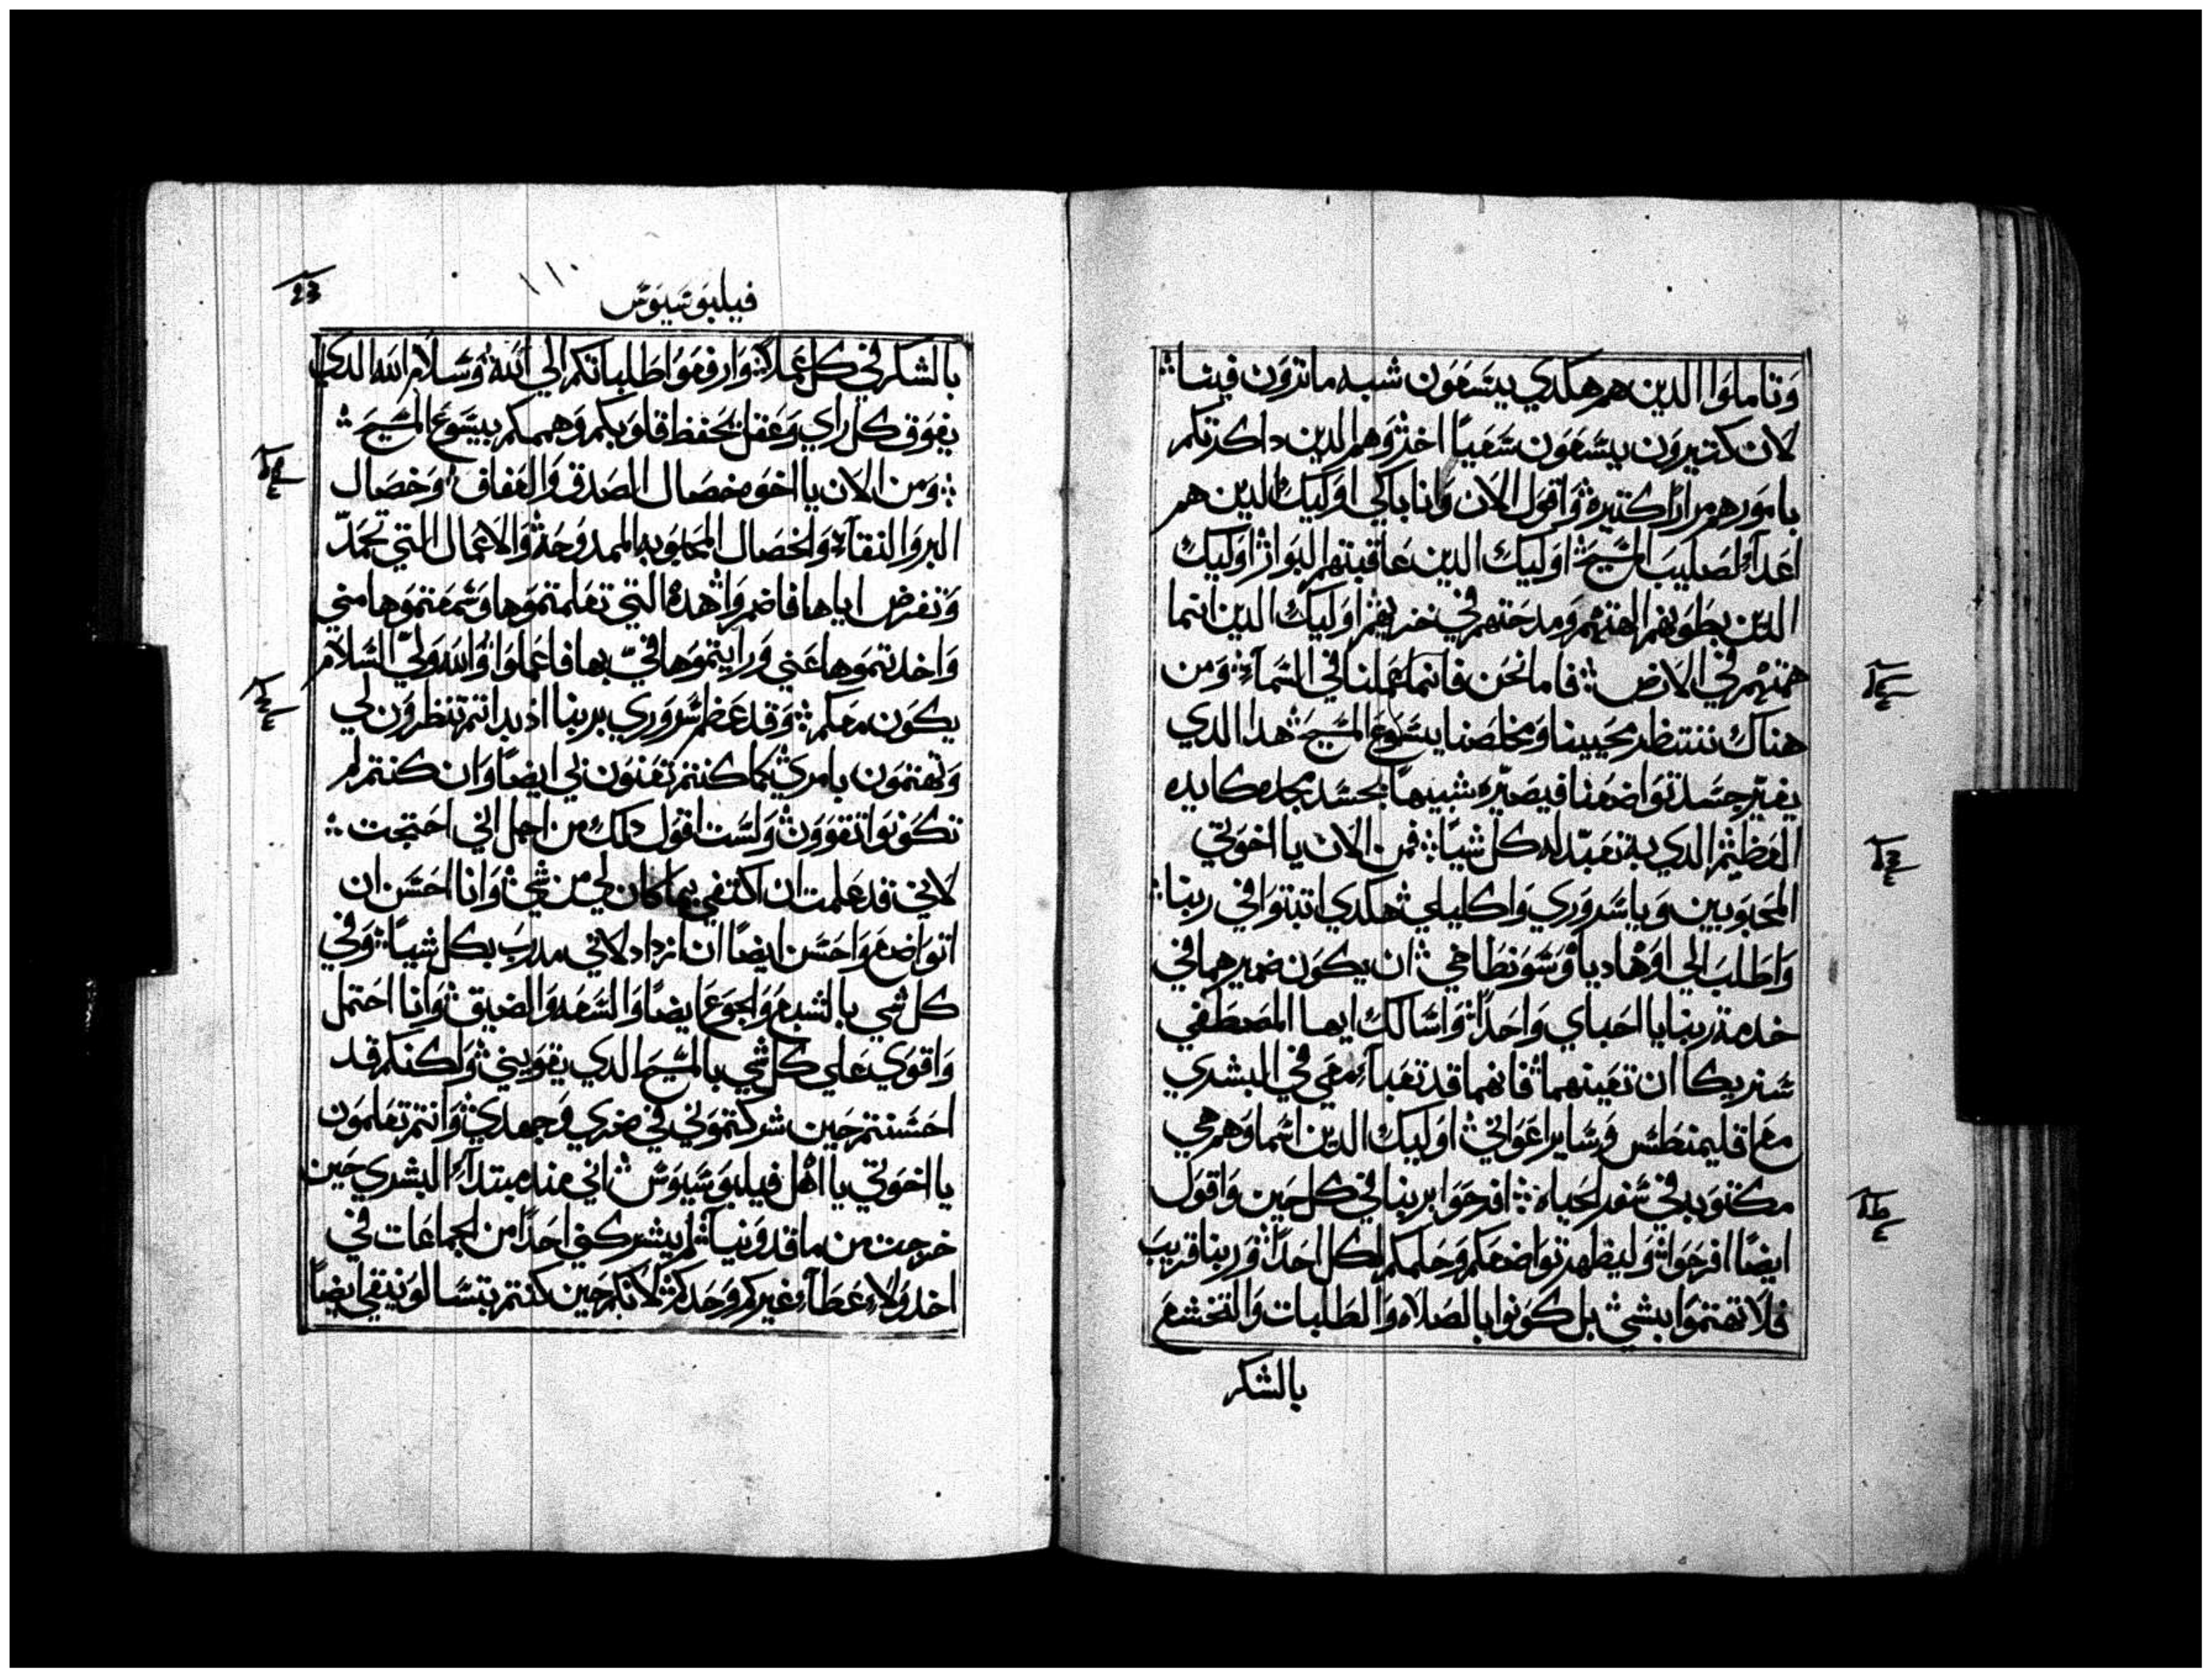 وتاملوا الدين هم هكدي يسعون شبه ما ترون فينا
لان كتيرون يسعون سعيًا اخر وهم الدين داكرتكم
بامورهم مرارًا كتيره واقول الان وانا باكي اوليك الدين هم
اعدآء لصليب المسيح اوليك الدين عاقبتهم البوار اوليك
الدين بطونهم الهتهم ومدحتهم في خزيهم اوليك الدين انما
همتهم في الارض فاما نحن فانما عملنا في السمآء ومن
هناك ننتظر محيينا ومخلصنا يسوع المسيح هدا الدي
يغير جسد تواضعنا فيصيره شبيهًا بجسد مجده كايده
العظيم الدي به تعبد له كل شيًا فمن الان يا اخوتي
المحبوبين ويا سروري واكليلي هكدي اتبتوا في ربنا
واطلب الي اوهاديا وسونطاخي ان يكون ضميرهما في
خدمة ربنا يا احباي واحدًا واسالك ايها المصطفي
سنريكا ان تعينهما فانهما قد تعبآء معي في البشري
مع اقليمنطس وساير اعواني اوليك الدين اسماوهم هي
مكتوبه في سفر الحياه افرحوا بربنا في كل حين واقول
ايضًا افرحوا وليظهر تواضعكم وحلمكم لكل احدًا وربنا قريب
فلا تهتموا بشي بل كونوا بالصلاه والطلبات والتخشع
بالشكر
فيليبوسيوس
١١٠
بالشكر في كل عملا وارفعوا طلباتكم الي الله وسلام الله الدي
يفوق كل راي وعقل يحفظ قلوبكم وهممكم بيسوع المسيح
ومن الان يا اخوه خصال الصدق والعفاف وخصال
البر والنقآء والخصال المحبوبه الممدوحه والاعمال التي تحمد
وتفرض اياها فاضمروا هده التي تعلمتموها وسمعتموها مني
واخدتموها عني ورايتموها في بها فاعملوا والله ولي السلام
يكون معكم وقد عظم سروري بربنا اد بداتم تنظرون لي
وتهتمون بامري كما كنتم تعنون بي ايضًا وان كنتم لم
تكونوا تقوون ولست اقول دلك من اجل اني احتجت
لاني قد علمت ان اكتفي بما كان لي من شي وانا احسن ان
اتواضع واحسن ايضًا ان ازداد لاني مدرب بكل شيًا وفي
كل شي بالشبع والجوع ايضًا والسعه والضيق وانا احتمل
واقوي علي كل شي بالمسيح الدي يقويني ولكنكم قد
احسنتم حين شركتموني في ضري وجهدي وانتم تعلمون
يا اخوتي يا اهل فيليبوسيوس اني مند مبتدآء البشري حين
خرجت من ماقدونيا لم يشركني احدًا من الجماعات في
اخد ولا عطآء غيركم وحدكم لانكم حين كنتم بتسالونيقي ايضًا